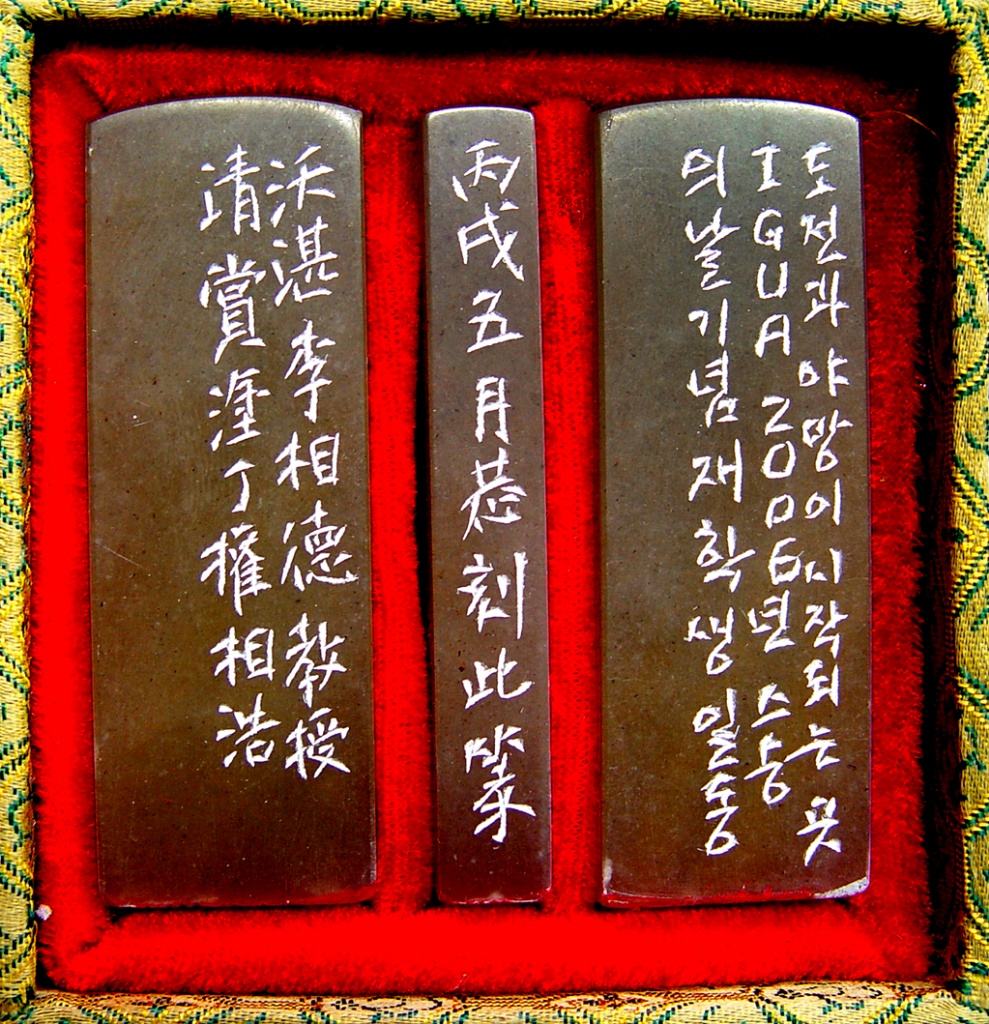 도전과 야망이 시작되는 곳
IGUA 2006년 스승
의날 기념 재학생 일동
丙戌五月恭刻此
沃湛李相德教授
清賞塗丁權相浩